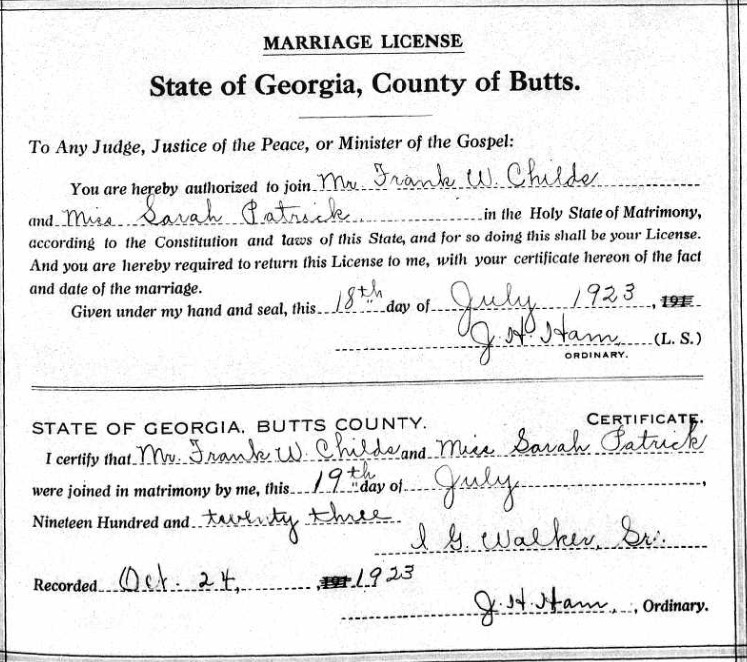 MARRIAGE LICENSE
State of Georgia, County of Butts.
To Any Judge, Justice of the Peace, or Minister of the Gospel:
You are hereby authorized to join Mr. Frank W. Childs
and Miss Sarah Patrick in the Holy State of Matrimony,
according to the Constitution and laws of this State, and for so doing this shall be your License.
And you are hereby required to return this License to me, with your certificate hereon of the fact
and date of the marriage.
Given under my hand and seal, this 18th day of July 1923, 191
J. H. Ham (L. S.)
ORDINARY.
STATE OF GEORGIA, BUTTS COUNTY. CERTIFICATE.
I certify that Mr. Frank W. Childs and Miss Sarah Patrick
were joined in matrimony by me, this 19th day of July,
Nineteen Hundred and twenty three
I G. Walker, Sr.
Recorded Oct. 24, 191 1923
J. H. Ham, Ordinary.